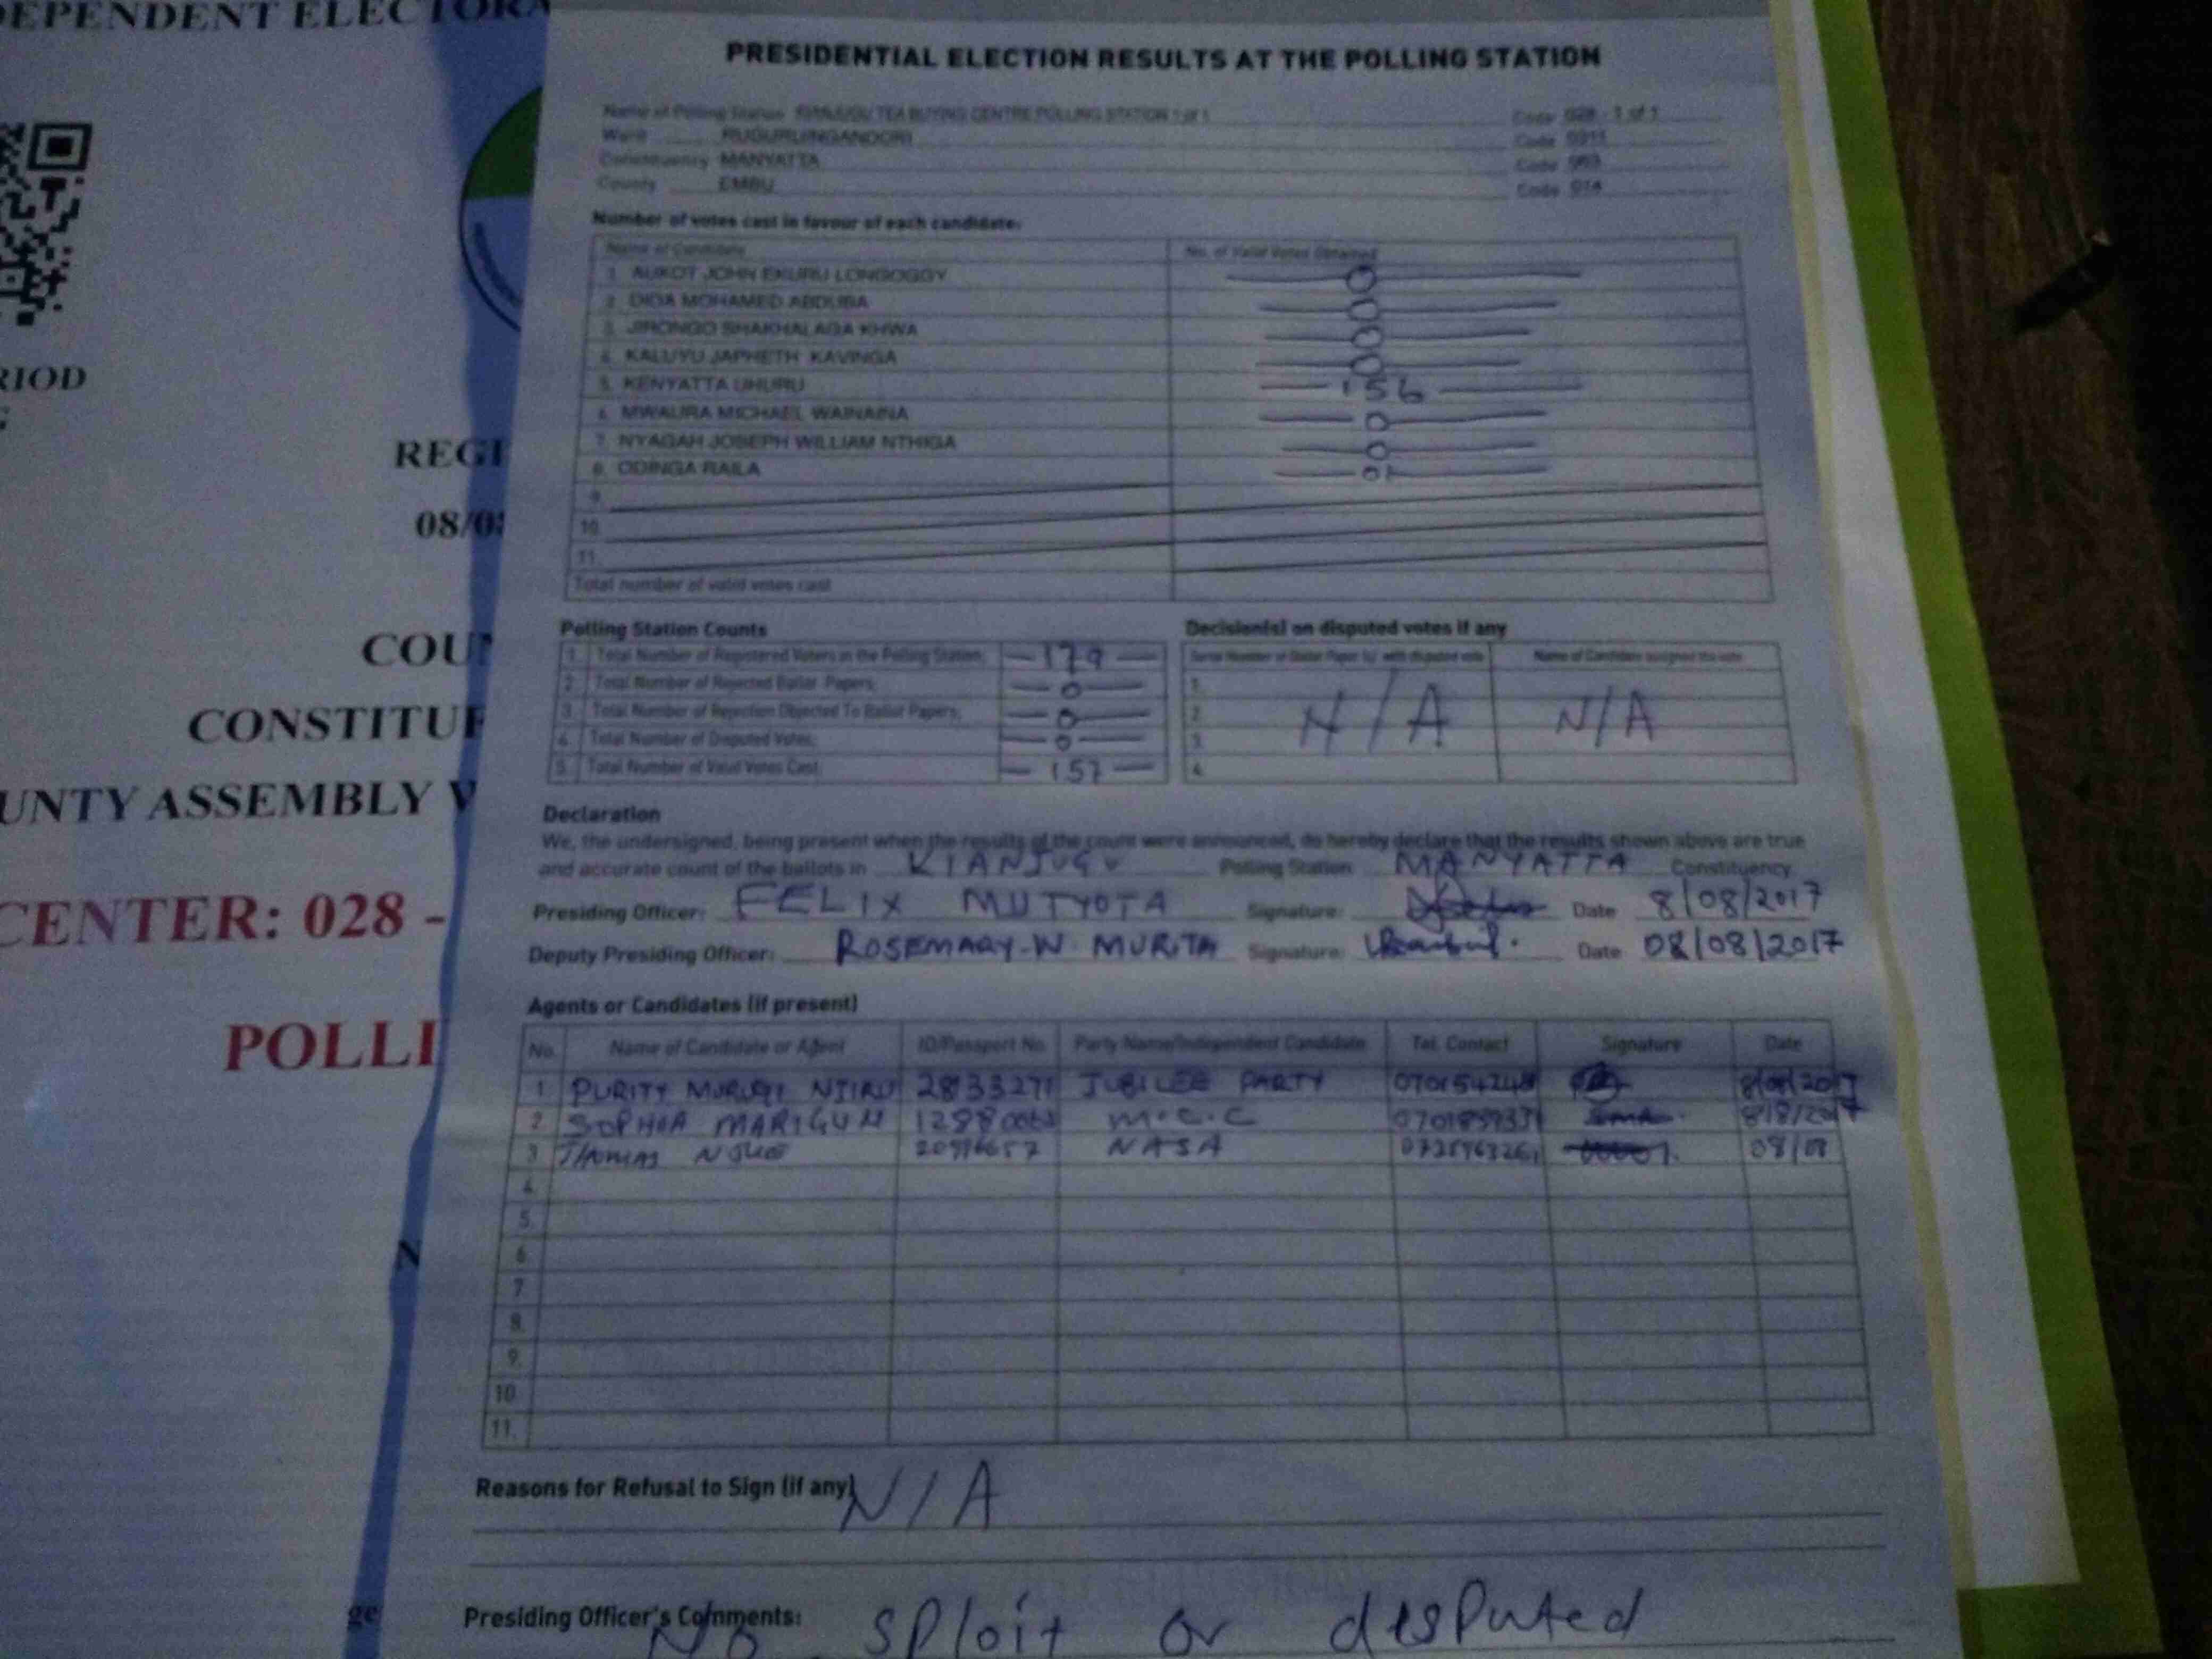 PRESIDENTIAL ELECTION RESULTS AT THE POLLING STATION
Name of Polling Station KIANJUGU TEA BUYING CENTRE POLLING STATION 1 of 1 Code 028 - 1 of 1
Ward RUGURU/NGANDORI Code
Constituency MANYATTA Code
County EMBU Code 014
Number of votes cast in favour of each candidate:
Name of Candidate No. of Valid Votes Obtained
1. AUKOT JOHN EKURU LONGOGGY 0
2. DIDA MOHAMED ABDUBA 0
3. JIRONGO SHAKHALAGA KHWA 0
4. KALUYU JAPHETH KAVINGA 0
5. KENYATTA UHURU 156
6. MWAURA MICHAEL WAINAINA 0
7. NYAGAH JOSEPH WILLIAM NTHIGA 0
8. ODINGA RAILA 01
9.
10.
11.
Total number of valid votes cast
Polling Station Counts
1. Total Number of Registered Voters in the Polling Station; 179
2. Total Number of Rejected Ballot Papers; 0
3. Total Number of Rejection Objected To Ballot Papers; 0
4. Total Number of Disputed Votes; 0
5. Total Number of Valid Votes Cast; 157
Decision(s) on disputed votes if any
Serial Number of Ballot Paper (s) with disputed vote Name of Candidate assigned the vote
1.
2. N/A N/A
3.
4.
Declaration
We, the undersigned, being present when the results of the count were announced, do hereby declare that the results shown above are true
and accurate count of the ballots in KIANJUGU Polling Station MANYATTA Constituency
Presiding Officer: FELIX MUTYOTA Signature: Date 8/08/2017
Deputy Presiding Officer: ROSEMARY-W MURITA Signature: Date 08/08/2017
Agents or Candidates (if present)
No. Name of Candidate or Agent ID/Passport No. Party Name/Independent Candidate Tel. Contact Signature Date
1 PURITY MURUGI NJIRU 28133271 JUBILEE PARTY 8/08/2017
2 SOPHIA M.C.C 8/8/2017
3 THOMAS NASA 08/08
4.
5.
6
7
8.
9.
10
11.
Reasons for Refusal to Sign (if any) N/A
Presiding Officer's Comments: No sploit or desputed
DEPENDENT ELECTORA
RIOD
REGI
08/08
COUN
CONSTITUE
UNTY ASSEMBLY W
CENTER: 028 -
POLLI
N
ge